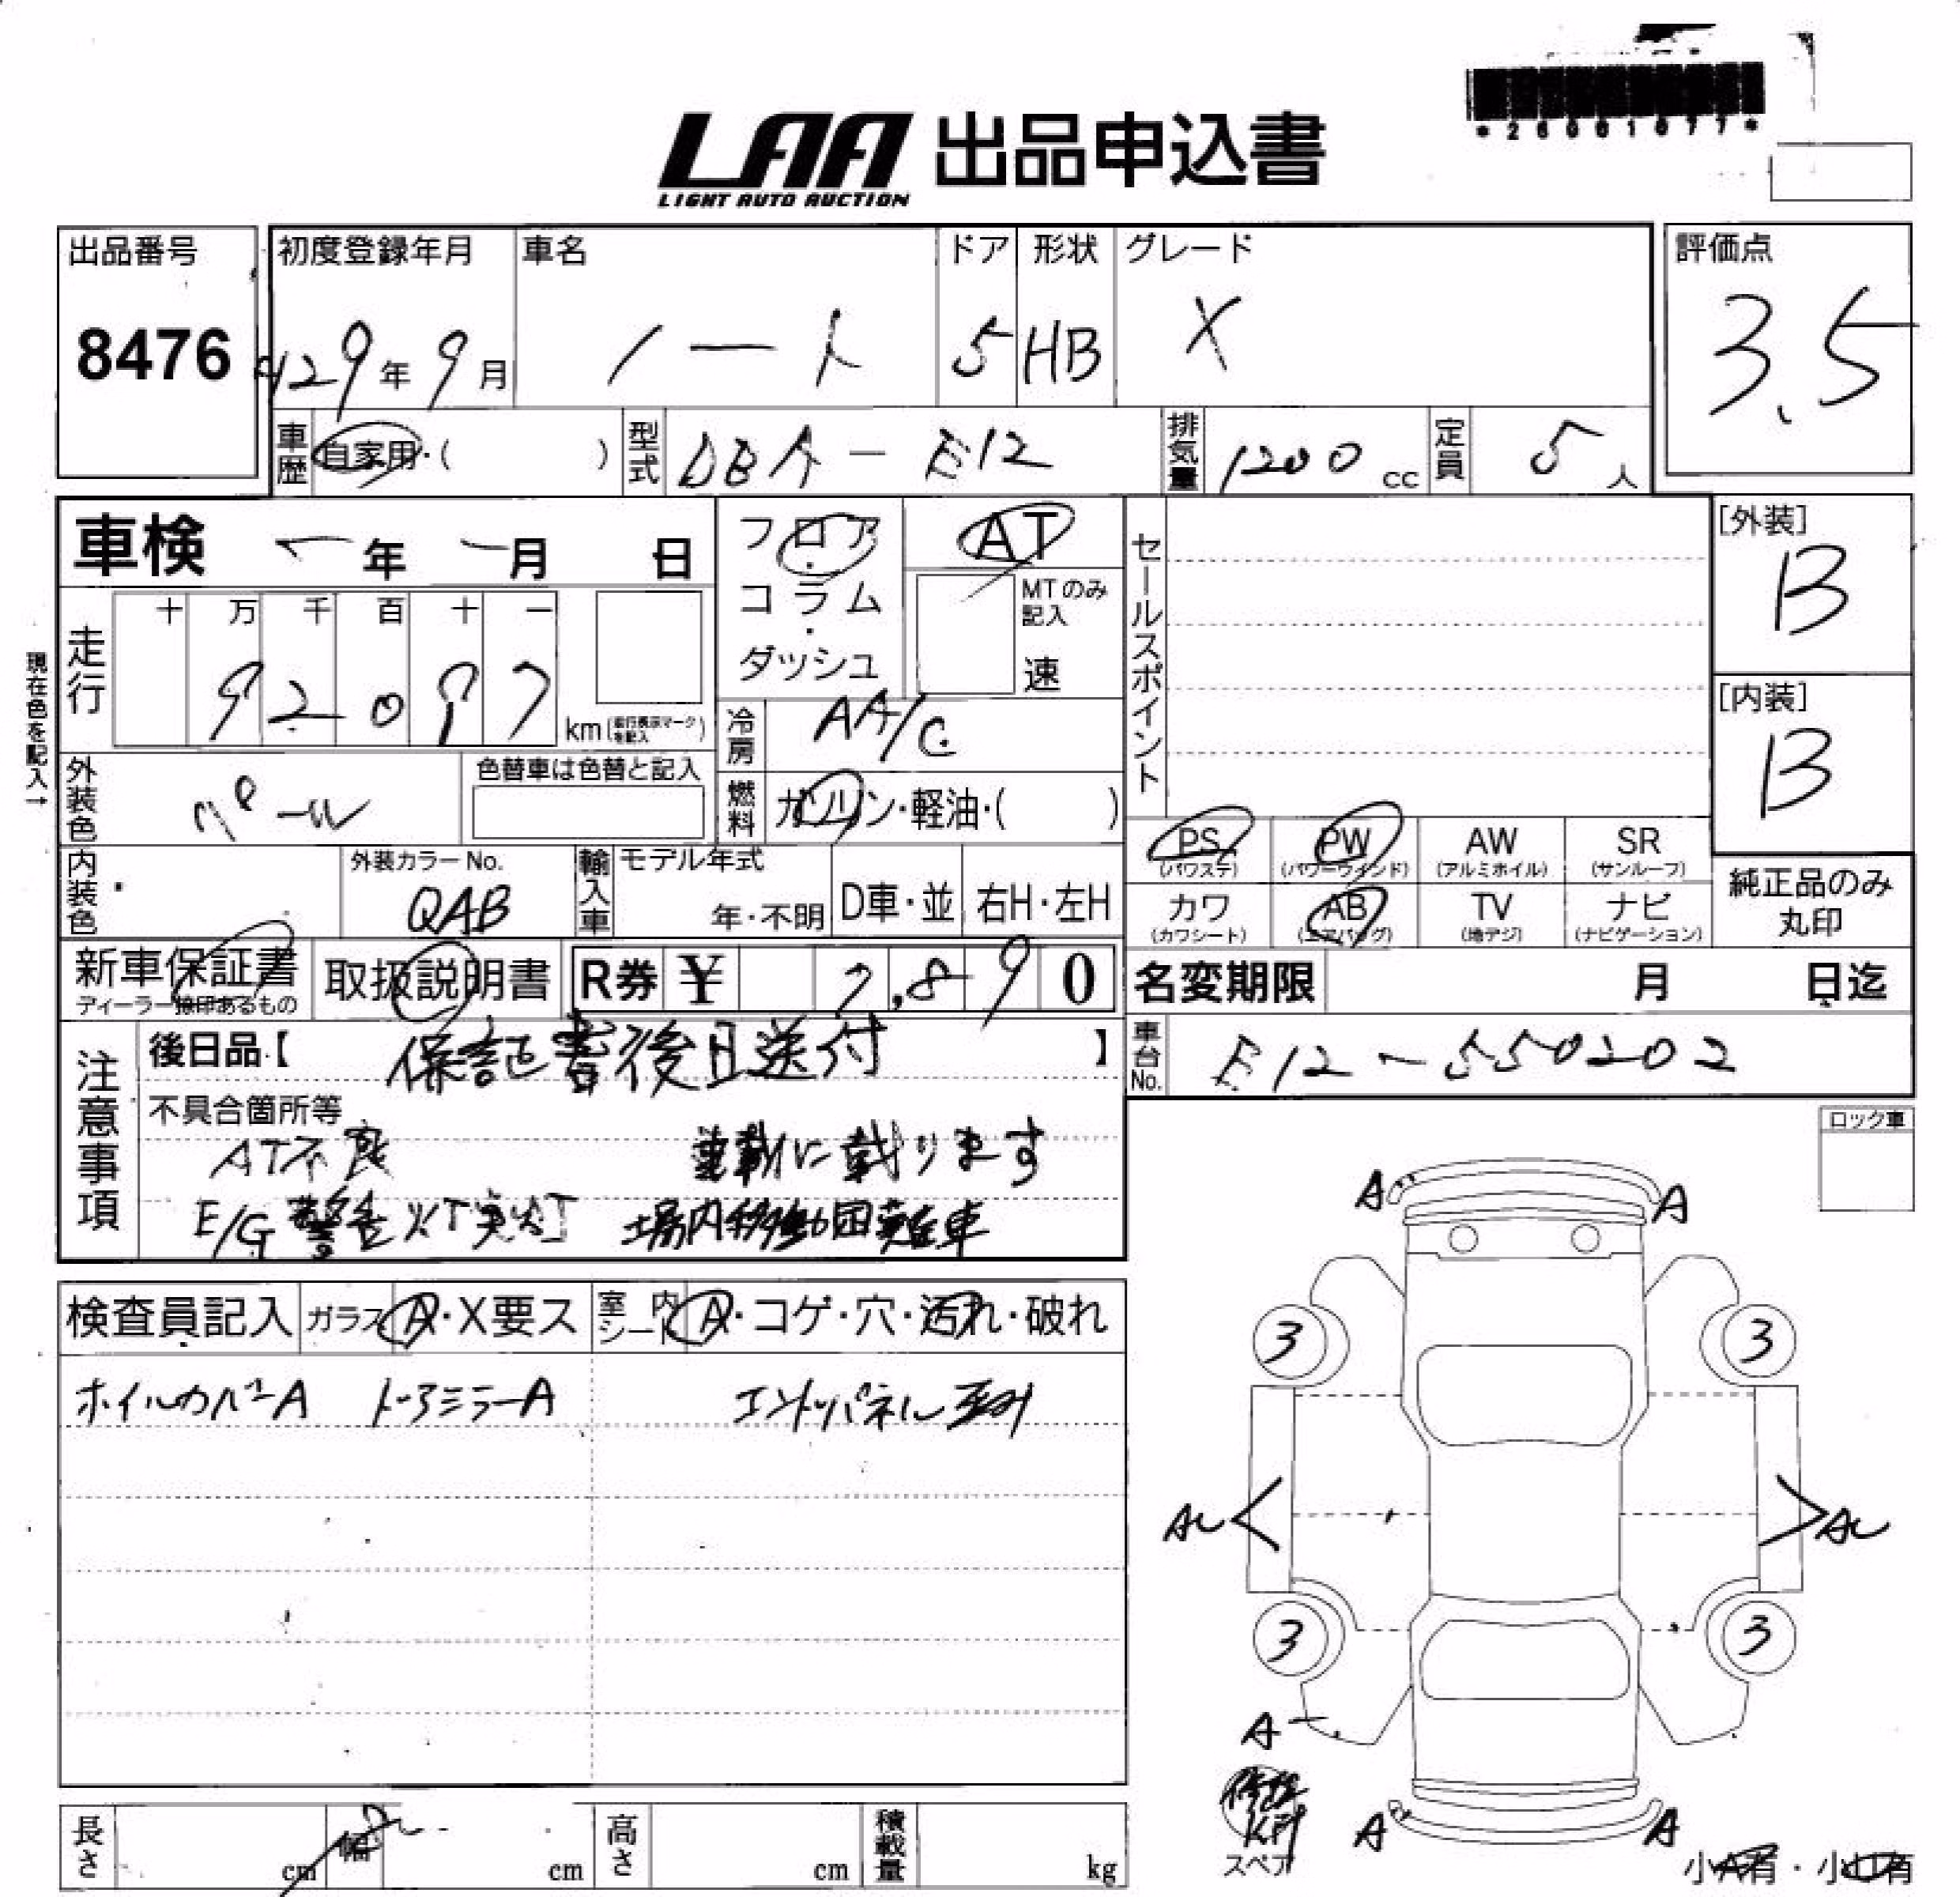 *26001077*
LAA 出品申込書
LIGHT AUTO AUCTION
出品番号 初度登録年月 車名 ドア 形状 グレード 評価点
8476 H29年 9月 ノート 5 HB X 3.5
車歴 自家用・( ) 型式 DBA-E12 排気量 1200 cc 定員 5 人
車検 年 月 日 フロア・コラム・ダッシュ AT セールスポイント [外装]
B
MTのみ記入 速
現在色を記入→
走行 十 万 千 百 十 一
9 2 0 9 7 km (走行表示マークを記入)
[内装]
B
冷房 AA/C
外装色 パール 色替車は色替と記入 燃料 ガソリン・軽油・( )
PS (パワステ) PW (パワーウインド) AW (アルミホイル) SR (サンルーフ)
内装色 外装カラーNo. QAB 輸入車 モデル年式 年・不明 D車・並 右H・左H
カワ (カワシート) AB (エアバッグ) TV (地デジ) ナビ (ナビゲーション)
純正品のみ
丸印
新車保証書 取扱説明書 R券 ¥ 7,890 名変期限 月 日迄
ディーラー捺印あるもの
注意事項 後日品【 保証書後日送付 】 車台No. E12-550202
不具合箇所等
AT不良 積載に載ります
E/G警告灯点灯 場内移動困難車
ロック車
A A
検査員記入 ガラス A・X要ス 室内シート A・コゲ・穴・汚れ・破れ
3 3
ホイルカバーA ドアミラーA エンドパネル歪み
AU AU
3 3
A
A A
スペア
小A有・小U有
長さ cm 幅 cm 高さ cm 積載量 kg